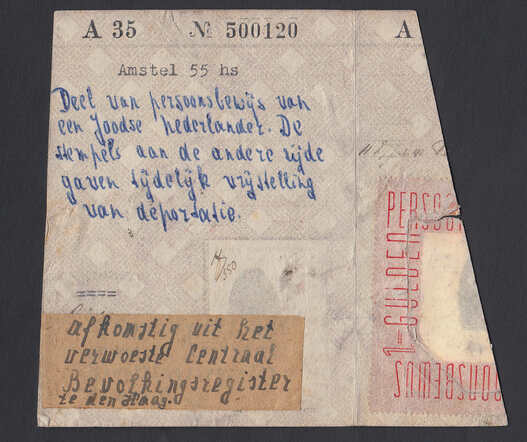 A 35 № 500120 A
Amstel 55 hs
Deel van persoonsbewijs van
een Joodse nederlander. De
stempels aan de andere zijde
gaven tijdelijk vrijstelling
van deportatie.
PERSOO
1=GULDEN
OONSBEWIJS
afkomstig uit het
verwoeste Centraal
Bevolkingsregister
te den Haag.